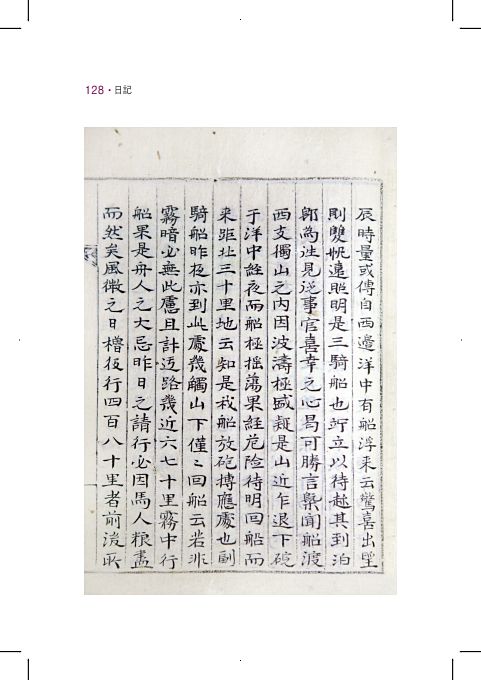 128 · 日記
辰時量或傳自西邊洋中有船浮来云驚喜出望
則雙帆遠照明是三騎船也竚立以待趂其到泊
卽為徃見從事官喜幸之心曷可勝言槩聞船渡
西支獨山之内因波濤極盛疑是山近乍退下碇
于洋中経夜而船極揺蕩果経危险待明回船而
来距此三十里地云知是我船放砲搏應處也副
騎船昨夜亦到此處幾觸山下僅〻回船云若非
霧暗必無此慮且計迃路幾近六七十里霧中行
船果是舟人之大忌昨日之請行必因馬人粮盡
而然矣風微之日櫓役行四百八十里者前後所